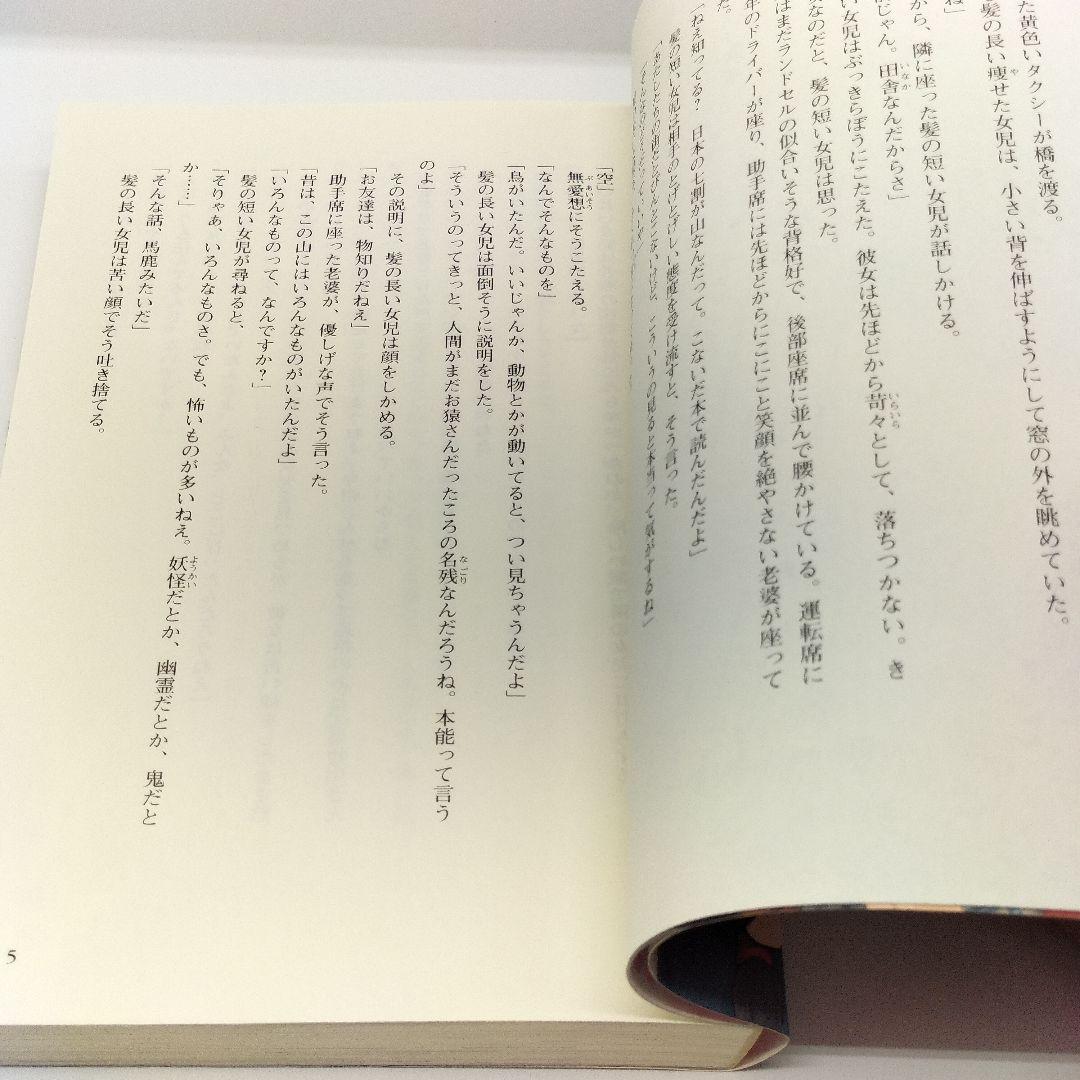 た黄色いタクシーが橋を渡る。
髪の長い痩せた女児は、小さい背を伸ばすようにして窓の外を眺めていた。
ね」
から、隣に座った髪の短い女児が話しかける。
じゃん。田舎なんだからさ」
い女児はぶっきらぼうにこたえた。彼女は先ほどから苛々として、落ちつかない。き
なのだと、髪の短い女児は思った。
はまだランドセルの似合いそうな背格好で、後部座席に並んで腰かけている。運転席に
年のドライバーが座り、助手席には先ほどからにこにこと笑顔を絶やさない老婆が座って
た。
「ねえ知ってる？　日本の七割が山なんだって。こないだ本で読んだんだよ」
髪の短い女児は相手のとげとげしい態度を受け流すと、そう言った。
こういうの見ると本当って気がするね」
「空」
無愛想にそうこたえる。
「なんでそんなものを」
「鳥がいたんだ。いいじゃんか、動物とかが動いてると、つい見ちゃうんだよ」
髪の長い女児は面倒そうに説明をした。
「そういうのってきっと、人間がまだお猿さんだったころの名残なんだろうね。本能って言う
のよ」
その説明に、髪の長い女児は顔をしかめる。
「お友達は、物知りだねえ」
助手席に座った老婆が、優しげな声でそう言った。
「昔は、この山にはいろんなものがいたんだよ」
「いろんなものって、なんですか？」
髪の短い女児が尋ねると、
「そりゃあ、いろんなものさ。でも、怖いものが多いねえ。妖怪だとか、幽霊だとか、鬼だと
か……」
「そんな話、馬鹿みたいだ」
髪の長い女児は苦い顔でそう吐き捨てる。
5